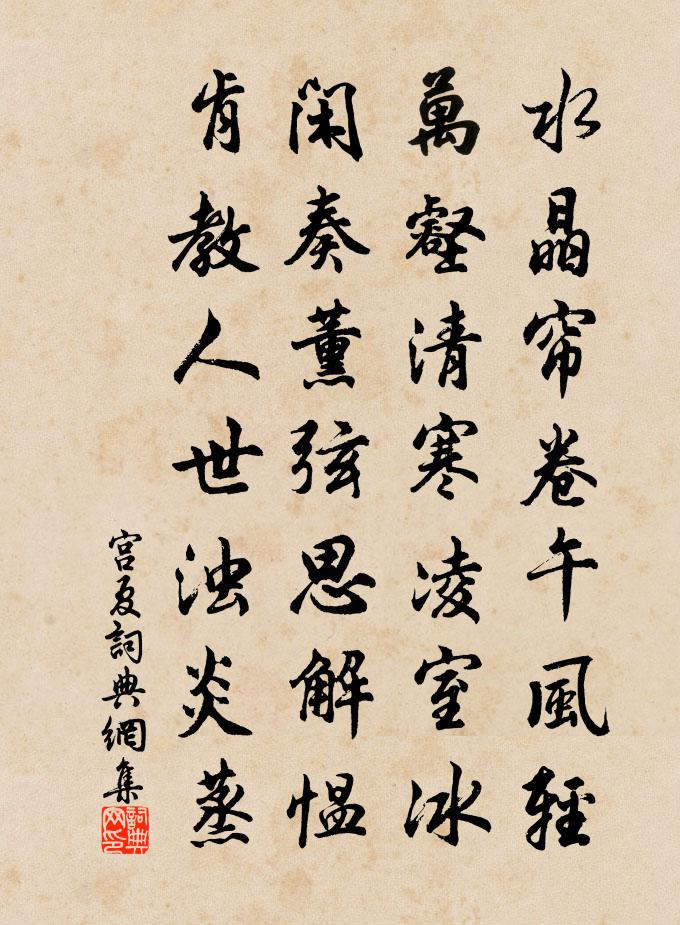 水晶帘卷午風輕
萬壑清寒凌室冰
閑奏薰弦思解愠
肯教人世浊炎蒸
宫夏詞典網集
詞典網印